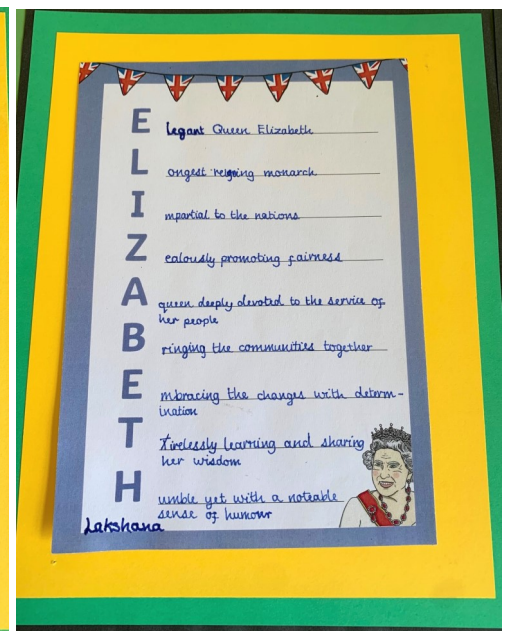 E legant Queen Elizabeth
L ongest reigning monarch
I mpartial to the nations
Z ealously promoting fairness
A queen deeply devoted to the service of
her people
B ringing the communities together
E mbracing the changes with determ-
ination
T Tirelessly learning and sharing
her wisdom
H umble yet with a noteable
sense of humour
Lakshana